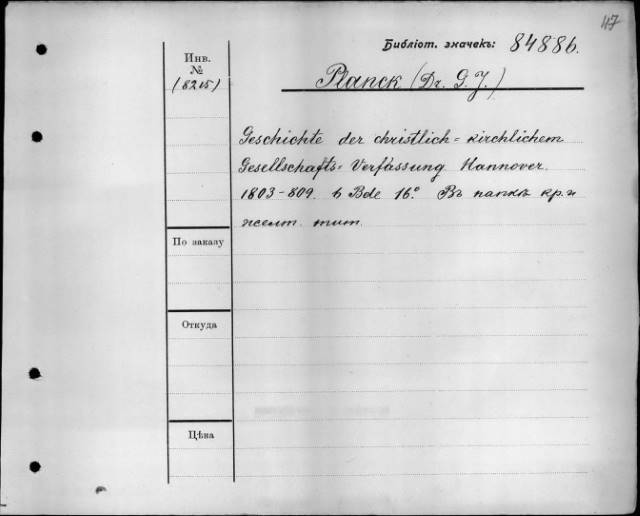 47
Библіот. значекъ: 84886.
Инв.
№
(8215)
Planck (Dr. G. J.)
Geschichte der christlich=kirchlichem
Gesellschafts=Verfassung. Hannover.
1803-809. 6 Bde 16.º Въ папкѣ кр. и
желт. тит.
По заказу
Откуда
Цѣна